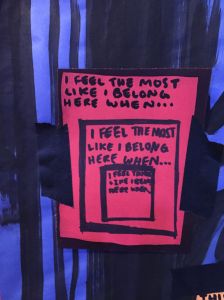 I FEEL THE MOST
LIKE I BELONG
HERE WHEN...
I FEEL THE MOST
LIKE I BELONG
HERE WHEN...
I FEEL
LIKE I BELONG
HERE WHEN